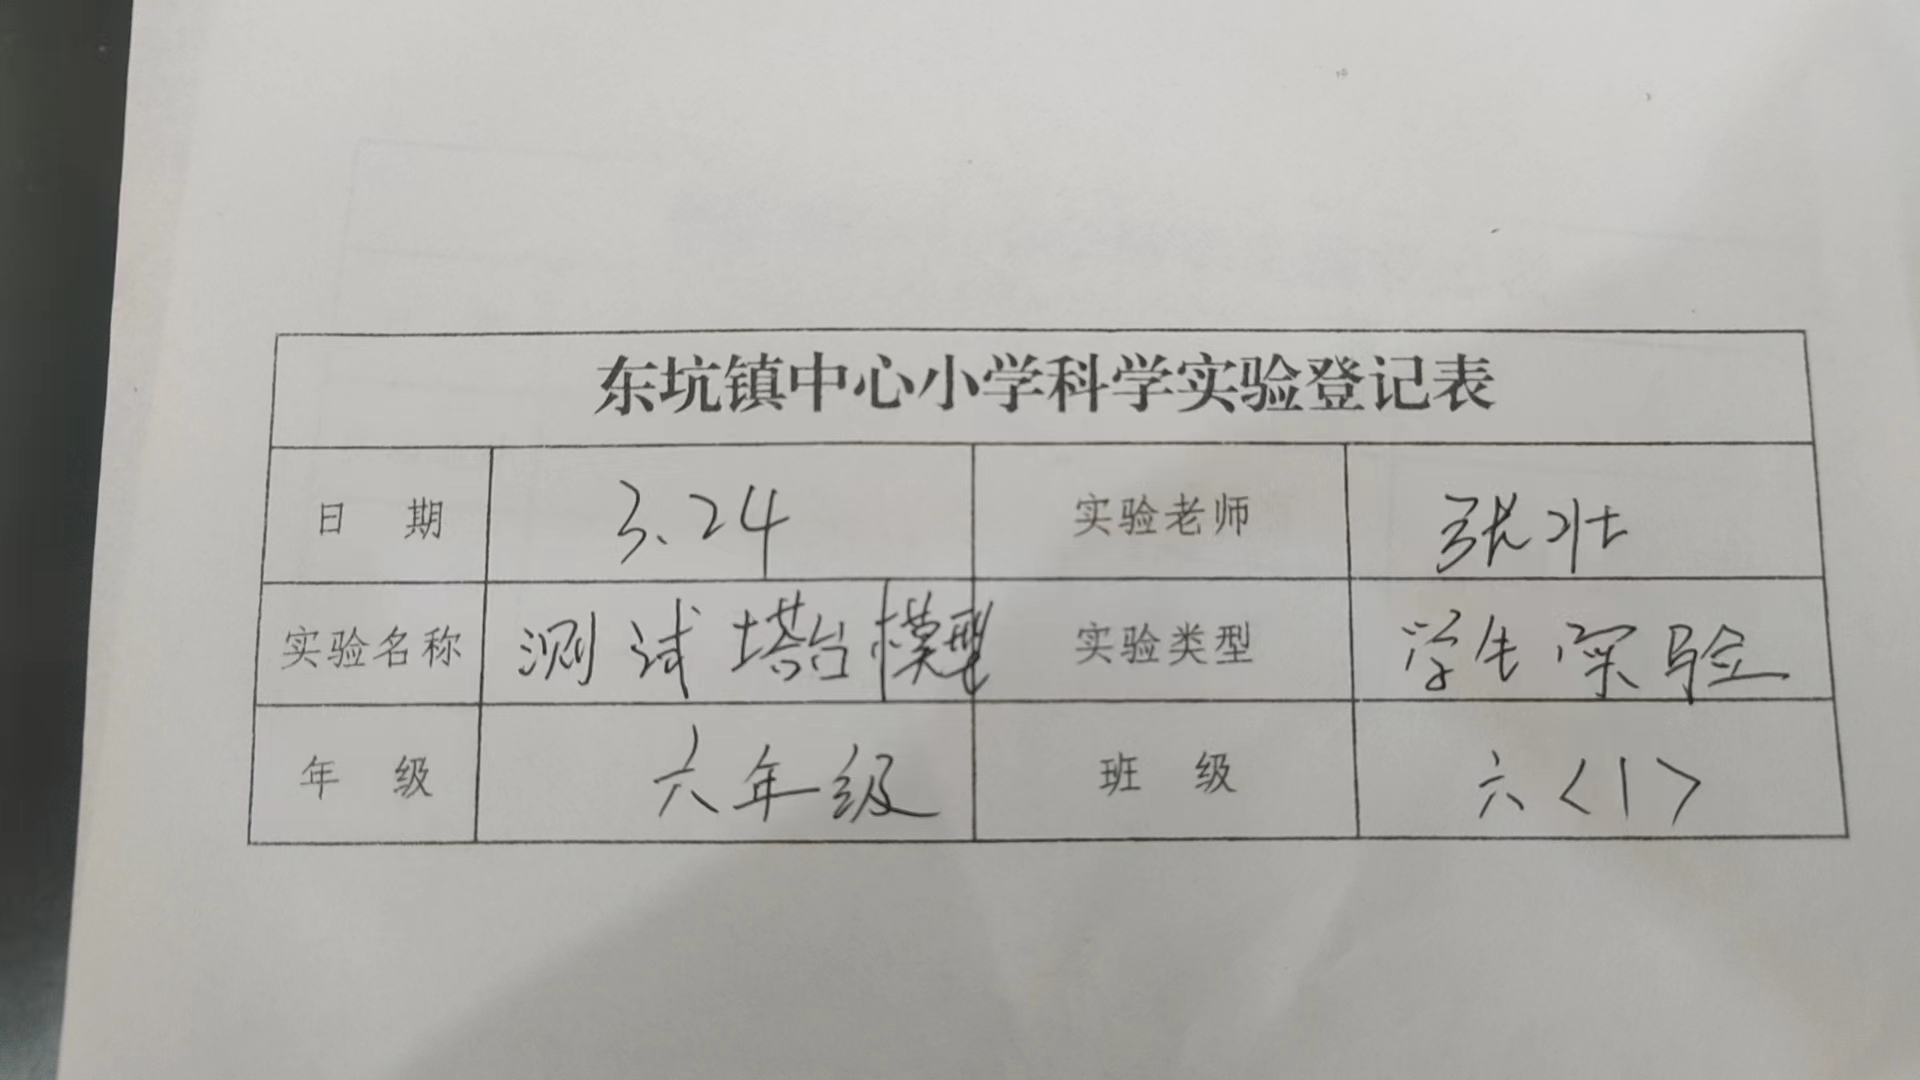 东坑镇中心小学科学实验登记表
日 期 3.24 实验老师 张壮
实验名称 测试塔台模型 实验类型 学生实验
年 级 六年级 班 级 六<1>